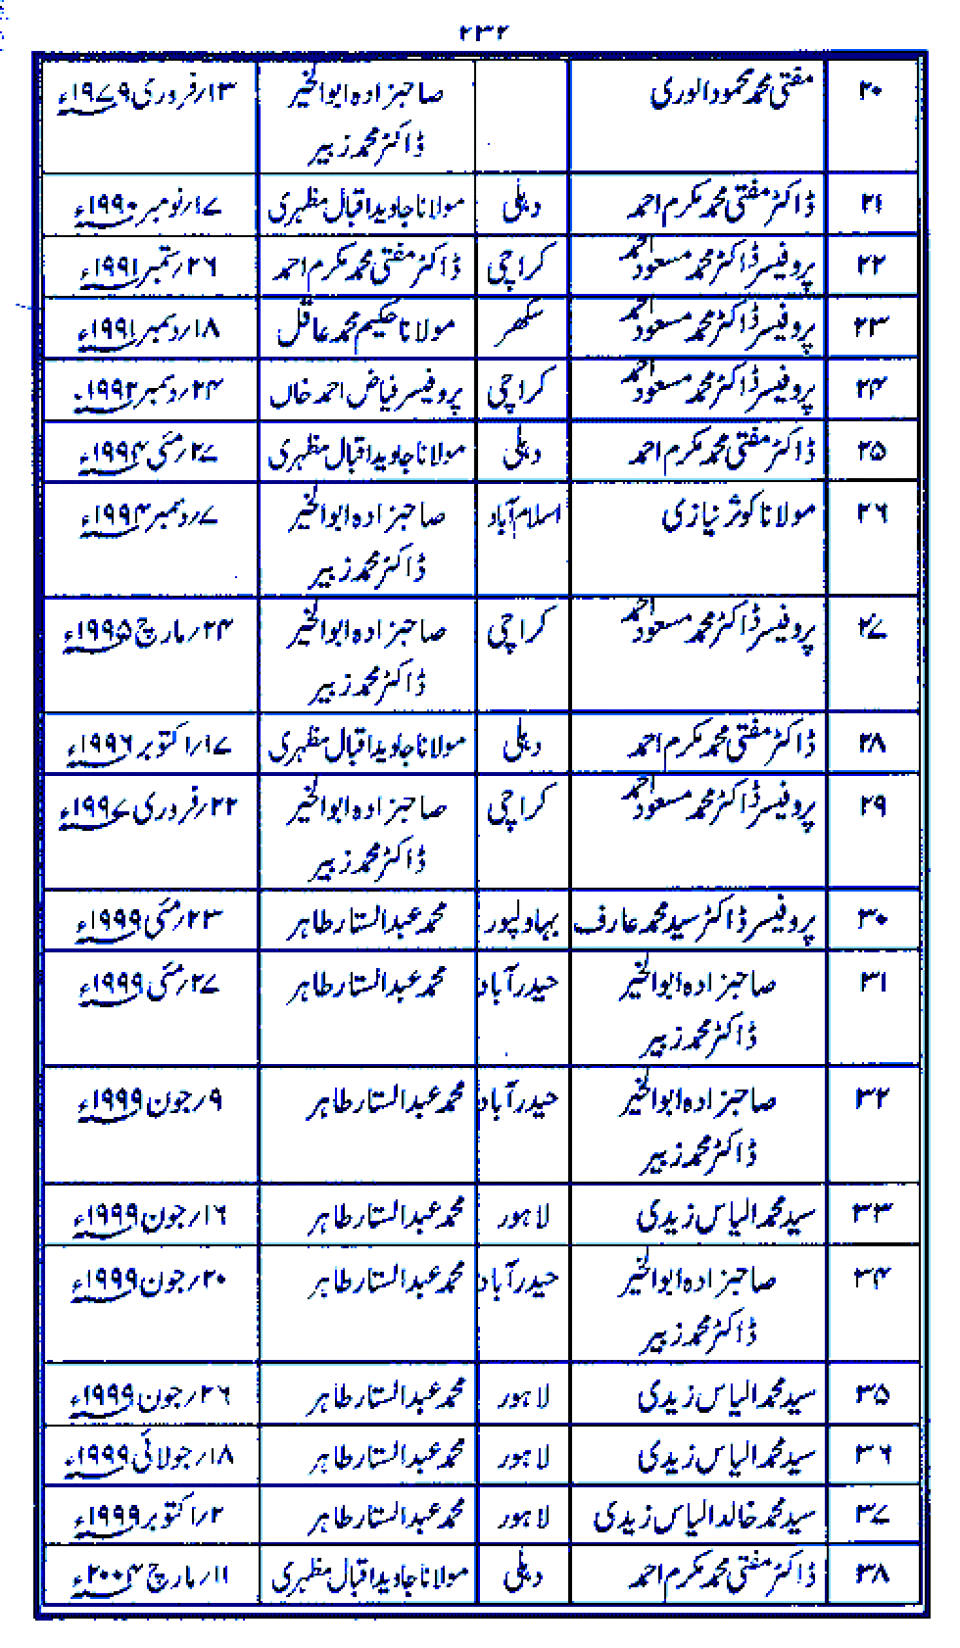 ۲۳۲
۲۰ مفتی محمد محمود الوری صاحبزادہ ابوالخیر ۱۳/فروری ۱۹۷۹ء
ڈاکٹر محمد زبیر
۲۱ ڈاکٹر مفتی محمد مکرم احمد دہلی مولانا جاوید اقبال مظہری ۱۷/نومبر ۱۹۹۰ء
۲۲ پروفیسر ڈاکٹر محمد مسعود احمد کراچی ڈاکٹر مفتی محمد مکرم احمد ۲۶/ستمبر ۱۹۹۱ء
۲۳ پروفیسر ڈاکٹر محمد مسعود احمد سکھر مولانا حکیم محمد عاقل ۱۸/دسمبر ۱۹۹۱ء
۲۴ پروفیسر ڈاکٹر محمد مسعود احمد کراچی پروفیسر فیاض احمد خاں ۲۴/دسمبر ۱۹۹۲ء
۲۵ ڈاکٹر مفتی محمد مکرم احمد دہلی مولانا جاوید اقبال مظہری ۲۷/مئی ۱۹۹۴ء
۲۶ مولانا کوثر نیازی اسلام آباد صاحبزادہ ابوالخیر ۷/دسمبر ۱۹۹۴ء
ڈاکٹر محمد زبیر
۲۷ پروفیسر ڈاکٹر محمد مسعود احمد کراچی صاحبزادہ ابوالخیر ۲۴/مارچ ۱۹۹۵ء
ڈاکٹر محمد زبیر
۲۸ ڈاکٹر مفتی محمد مکرم احمد دہلی مولانا جاوید اقبال مظہری ۱۷/اکتوبر ۱۹۹۶ء
۲۹ پروفیسر ڈاکٹر محمد مسعود احمد کراچی صاحبزادہ ابوالخیر ۲۲/فروری ۱۹۹۷ء
ڈاکٹر محمد زبیر
۳۰ پروفیسر ڈاکٹر سید محمد عارف بہاولپور محمد عبدالستار طاہر ۲۳/مئی ۱۹۹۹ء
۳۱ صاحبزادہ ابوالخیر حیدرآباد محمد عبدالستار طاہر ۲۷/مئی ۱۹۹۹ء
ڈاکٹر محمد زبیر
۳۲ صاحبزادہ ابوالخیر حیدرآباد محمد عبدالستار طاہر ۹/جون ۱۹۹۹ء
ڈاکٹر محمد زبیر
۳۳ سید محمد الیاس زیدی لاہور محمد عبدالستار طاہر ۱۶/جون ۱۹۹۹ء
۳۴ صاحبزادہ ابوالخیر حیدرآباد محمد عبدالستار طاہر ۲۰/جون ۱۹۹۹ء
ڈاکٹر محمد زبیر
۳۵ سید محمد الیاس زیدی لاہور محمد عبدالستار طاہر ۲۶/جون ۱۹۹۹ء
۳۶ سید محمد الیاس زیدی لاہور محمد عبدالستار طاہر ۱۸/جولائی ۱۹۹۹ء
۳۷ سید محمد خالد الیاس زیدی لاہور محمد عبدالستار طاہر ۲/اکتوبر ۱۹۹۹ء
۳۸ ڈاکٹر مفتی محمد مکرم احمد دہلی مولانا جاوید اقبال مظہری ۱۱/مارچ ۲۰۰۴ء